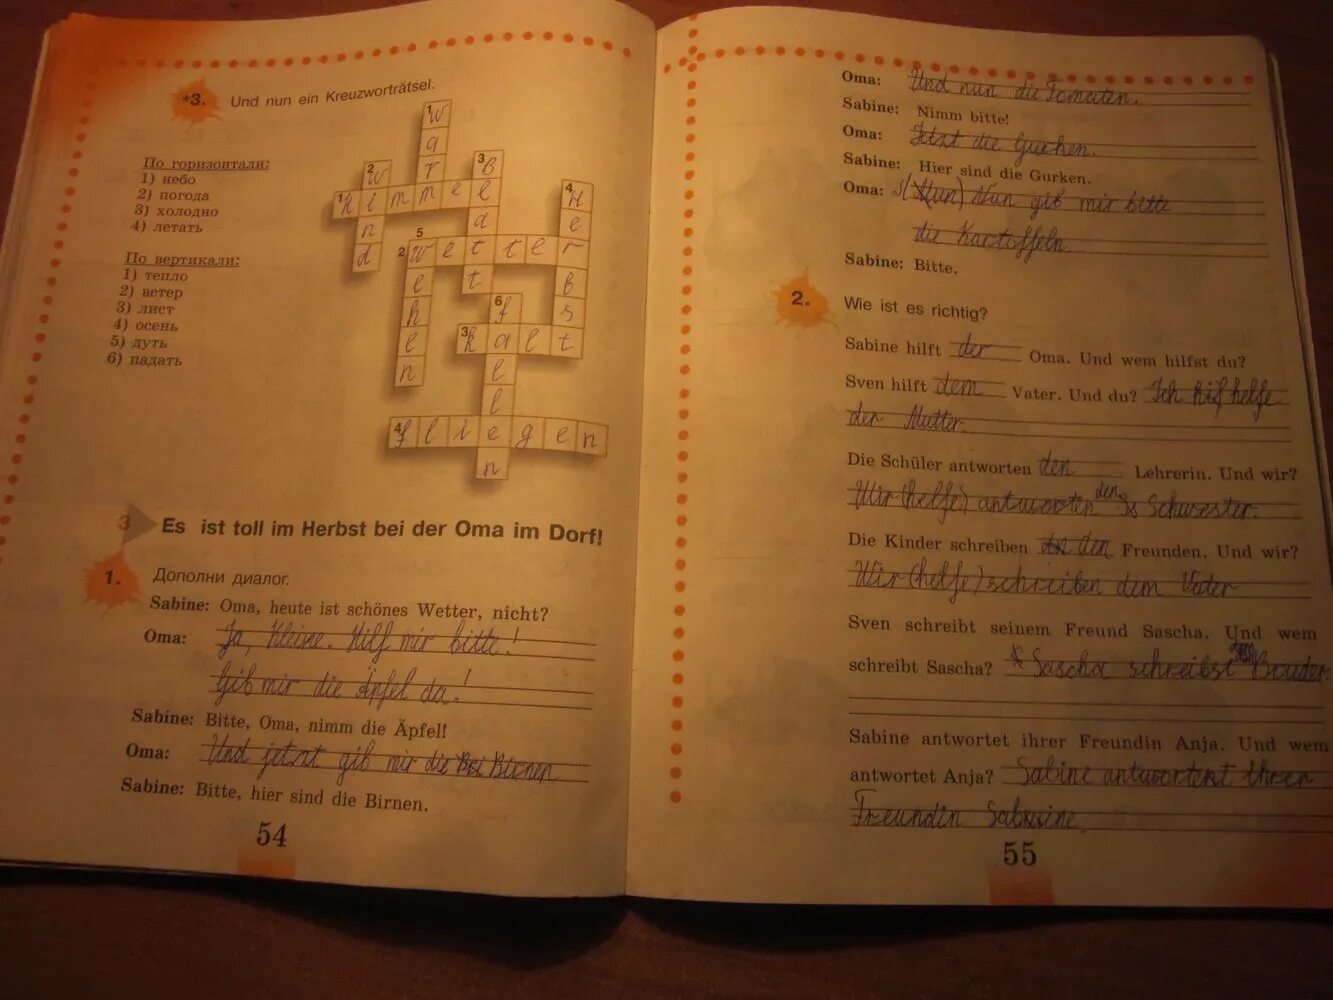 *3. Und nun ein Kreuzworträtsel.
По горизонтали:
1) небо
2) погода
3) холодно
4) летать
По вертикали:
1) тепло
2) ветер
3) лист
4) осень
5) дуть
6) падать
1 warm
2 wind
3 Blatt
4 Herbst
1 himmel
5 wehen
2 wetter
6 fallen
3 kalt
4 fliegen
3 Es ist toll im Herbst bei der Oma im Dorf!
1. Дополни диалог.
Sabine: Oma, heute ist schönes Wetter, nicht?
Oma: Ja, Kleine. Hilf mir bitte!
Gib mir die Äpfel da!
Sabine: Bitte, Oma, nimm die Äpfel!
Oma: Und jetzt gib mir die Birnen
Sabine: Bitte, hier sind die Birnen.
54
Oma: Und nun die Tomaten.
Sabine: Nimm bitte!
Oma: Jetzt die Gurken.
Sabine: Hier sind die Gurken.
Oma: (Nun) Nun gib mir bitte
die Kartoffeln.
Sabine: Bitte.
2. Wie ist es richtig?
Sabine hilft der Oma. Und wem hilfst du?
Sven hilft dem Vater. Und du? Ich helfe
der Mutter.
Die Schüler antworten den Lehrerin. Und wir?
Wir (helfe) antworten den Schwester.
Die Kinder schreiben den Freunden. Und wir?
Wir (helfe) schreiben dem Vater
Sven schreibt seinem Freund Sascha. Und wem
schreibt Sascha? Sascha schreibst Bruder.
Sabine antwortet ihrer Freundin Anja. Und wem
antwortet Anja? Sabine antwortent ihrer
Freundin
55